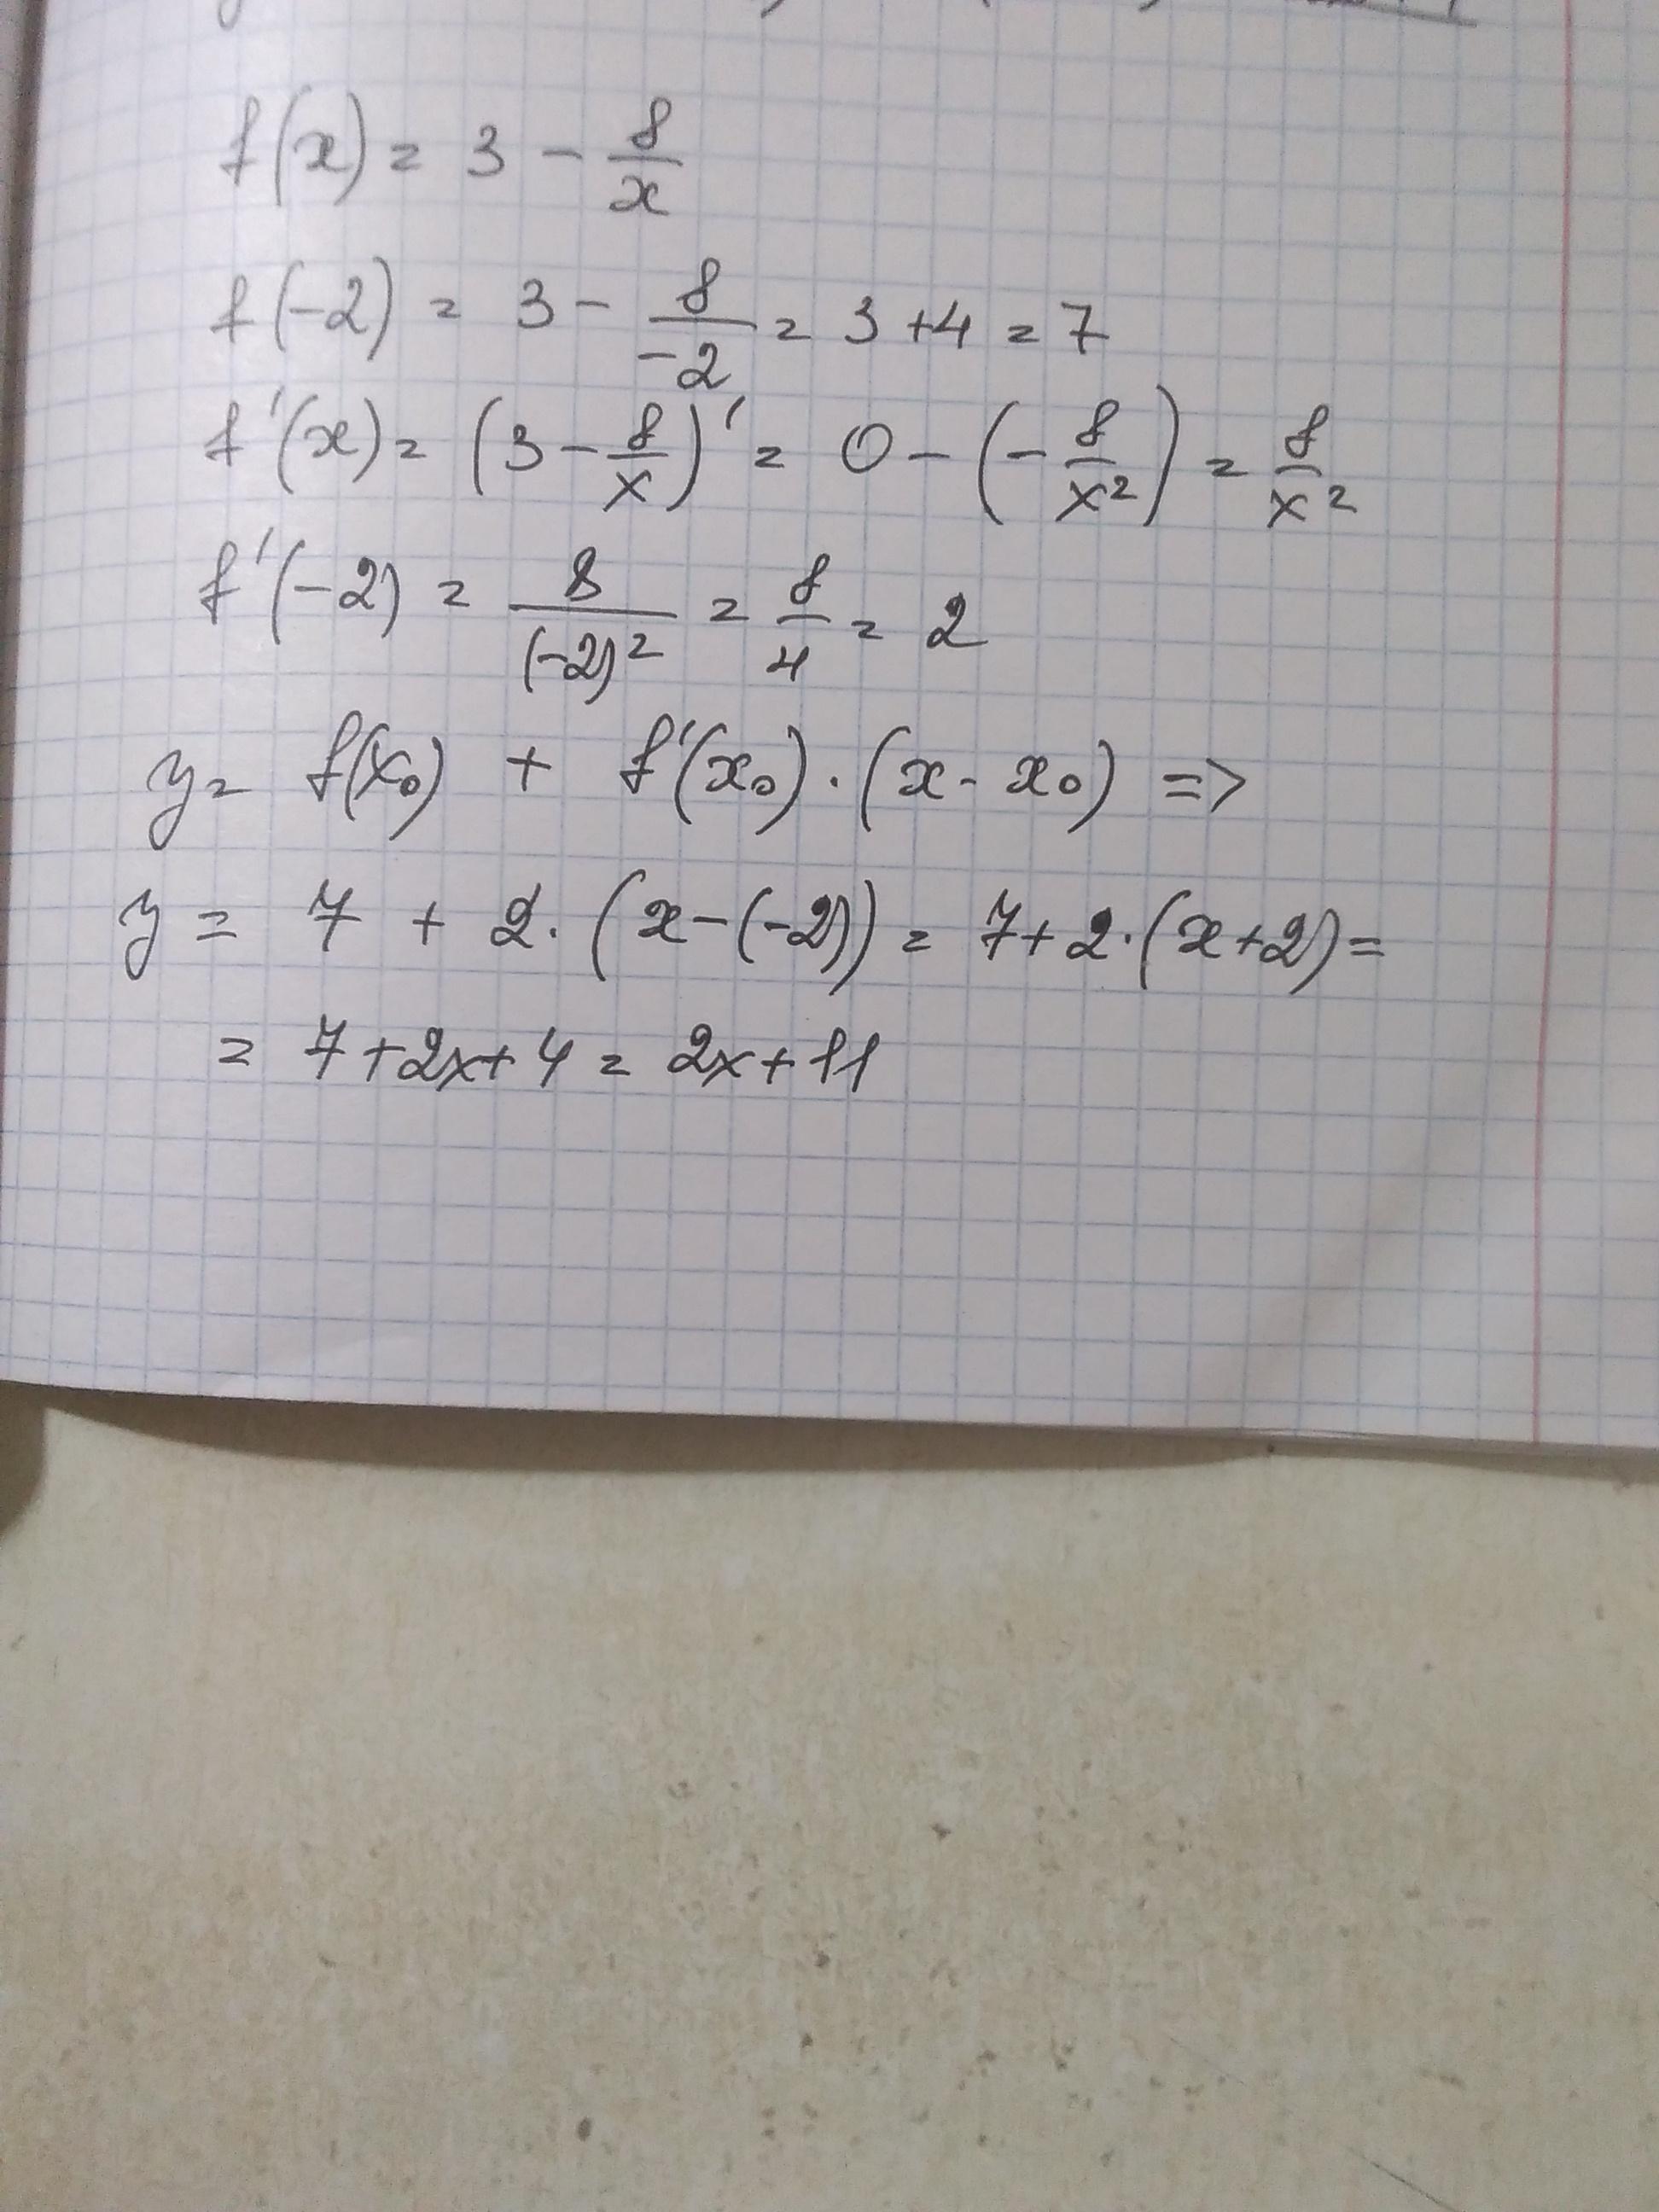 f(x) = 3 - 8/x
f(-2) = 3 - 8/-2 = 3 + 4 = 7
f'(x) = (3 - 8/x)' = 0 - (- 8/x²) = 8/x²
f'(-2) = 8/(-2)² = 8/4 = 2
y = f(x₀) + f'(x₀) · (x - x₀) =>
y = 7 + 2 · (x - (-2)) = 7 + 2 · (x + 2) =
= 7 + 2x + 4 = 2x + 11